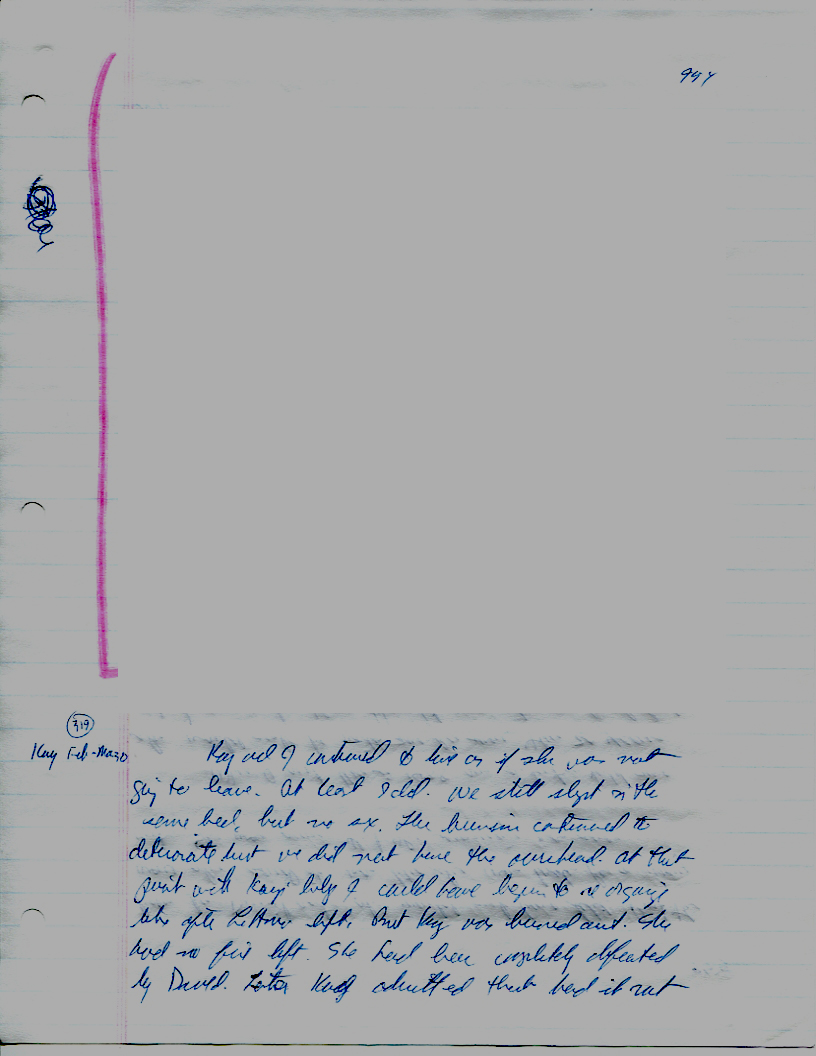 954
319
Kay Feb-Mar 30
Kay and I continued to live as if she was not
going to leave. At least I did. We still slept in the
same bed, but no sex. The business continued to
deteriorate but we did not have the overhead. At that
point with Kay's help I could have begun to re organize
like after left. But Kay was burned out. She
had no fire left. She had been completely defeated
by David. Later Kay admitted that had it not